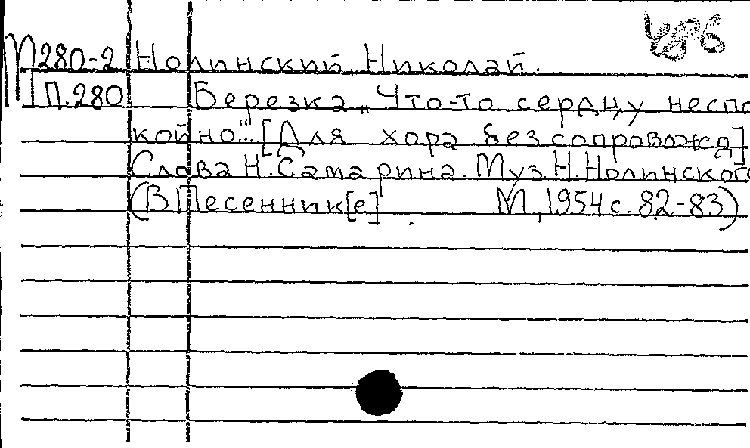 М280-2 Нолинский Николай.
П.280 Березка „Что-то сердцу неспо
койно"..[Для хора без сопровожд]
Слова Н.Самарина. Муз Н.Нолинского
(В Песенник[е] М., 1954 с. 82-83)